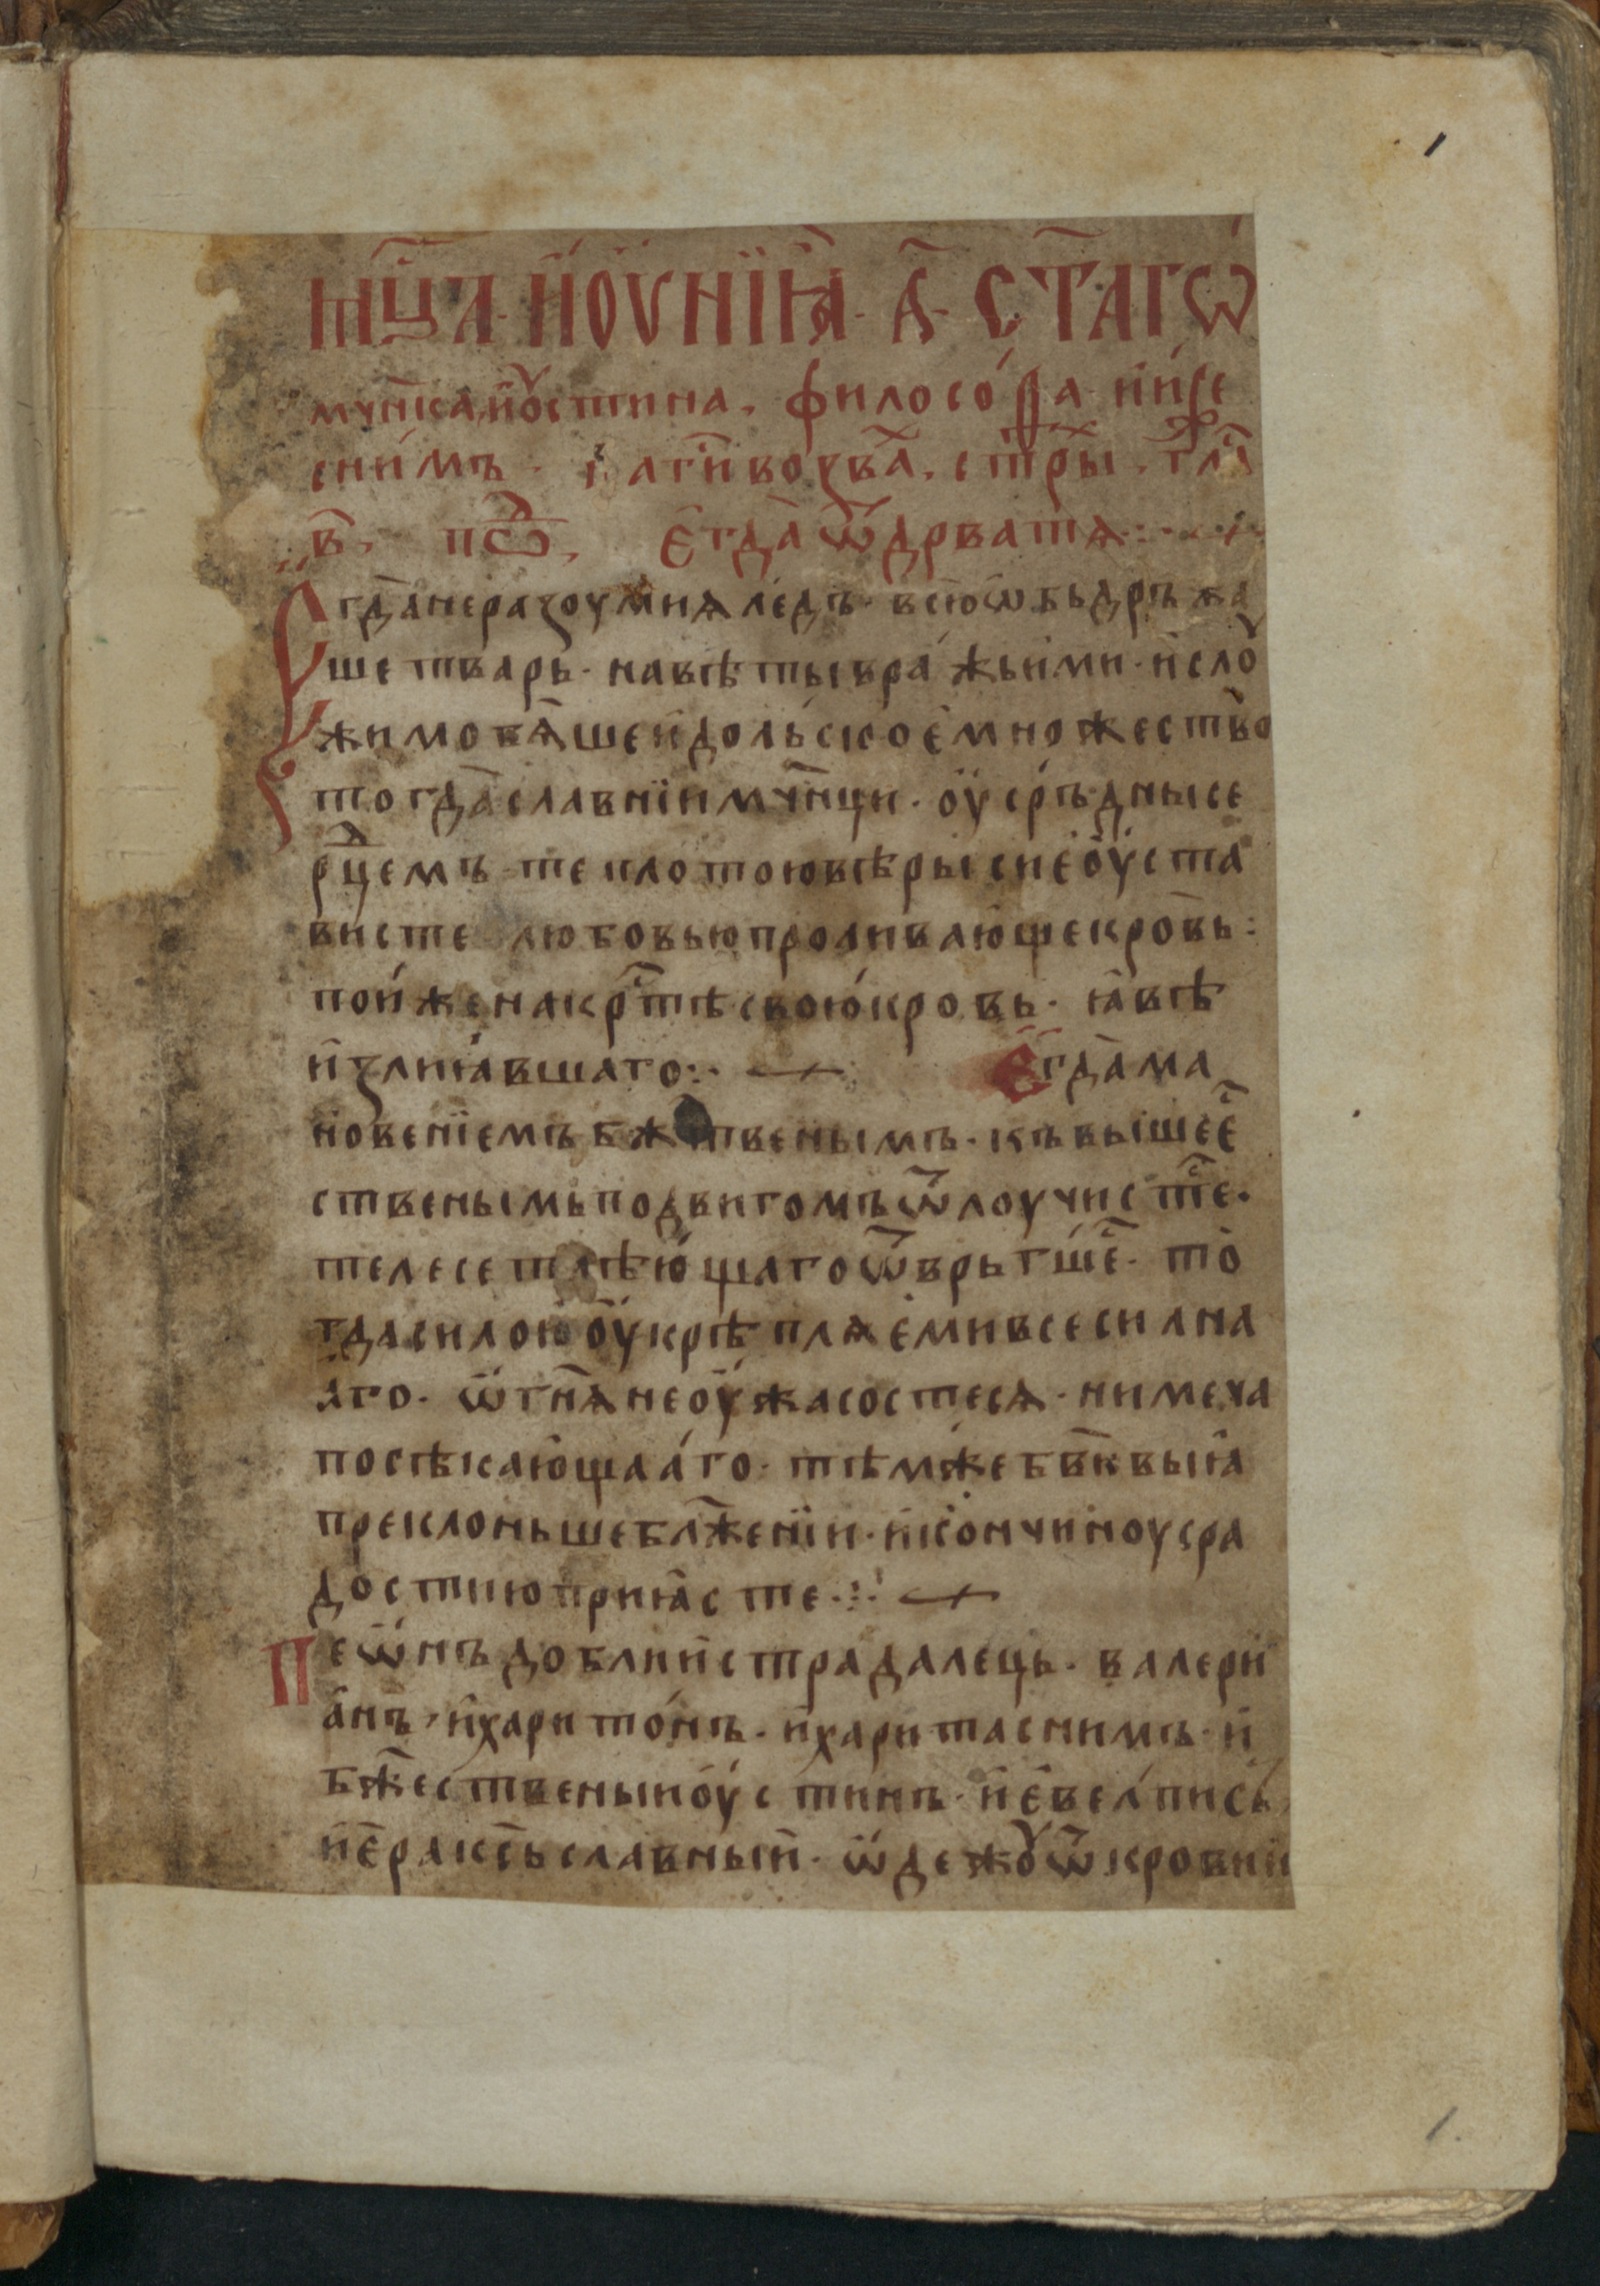 1
мц҃а · и҆ꙋнїꙗ҆ · а҃ · ст҃агѡ
мч҃нка и҆ꙋстина , филосо́фа и҆и҆же
сни́мъ · на г҃и возва , стр҃ы , гл҃
в҃ , по , є҆гда ѿдрвата :·
Єгда нера҅зоумиѧ ле́дъ · всю ѡбьдръжа
ше тварь · навѣты вра́жьи́ми · и҆ сло
жимо бѧ́ше и҆до́льское мно́жество
тогда славнїи мч҃нци · ᲂу҆сръ́дны се
рⷣцемъ теплотою вѣры сиѐ ᲂу҆ста
висте любовью проливаю́ще кровь :
пои́же на крⷭ҇тѣ свою́ кровь · ꙗ҆вѣ
и҆злиꙗ́вшаго :· Є҆гда ма
новенїемъ бжⷭ҇твенымъ · къ вы́шеє҆
ственымь подвигомъ ѿлоучистⷭ҇е ·
телесе тлѣю́щаго ѿврьгшѐ · то
гда силою ᲂу҆крѣплѧе́ми всеси́лна
а́го · ѿ гнѧ̀ не ᲂу҆жасостесѧ · ни меча
посѣкаю́щаа́го · тѣмже бв҃к выꙗ̀
преклоньше блаже́нїи · и҆ кончиноу с ра
достию прїꙗ́сте ·:·
Пеѡ́нъ доблии страдалець · валери
а́нъ · и҆ харито́нъ · и҆ харита с нимъ · и҆
бжⷭ҇ественыи ᲂу҆стинъ · и҆ є҆вел́писъ
и҆є҆раксъ славный · ѡ҆дежꙋ ѿ кровии
1.